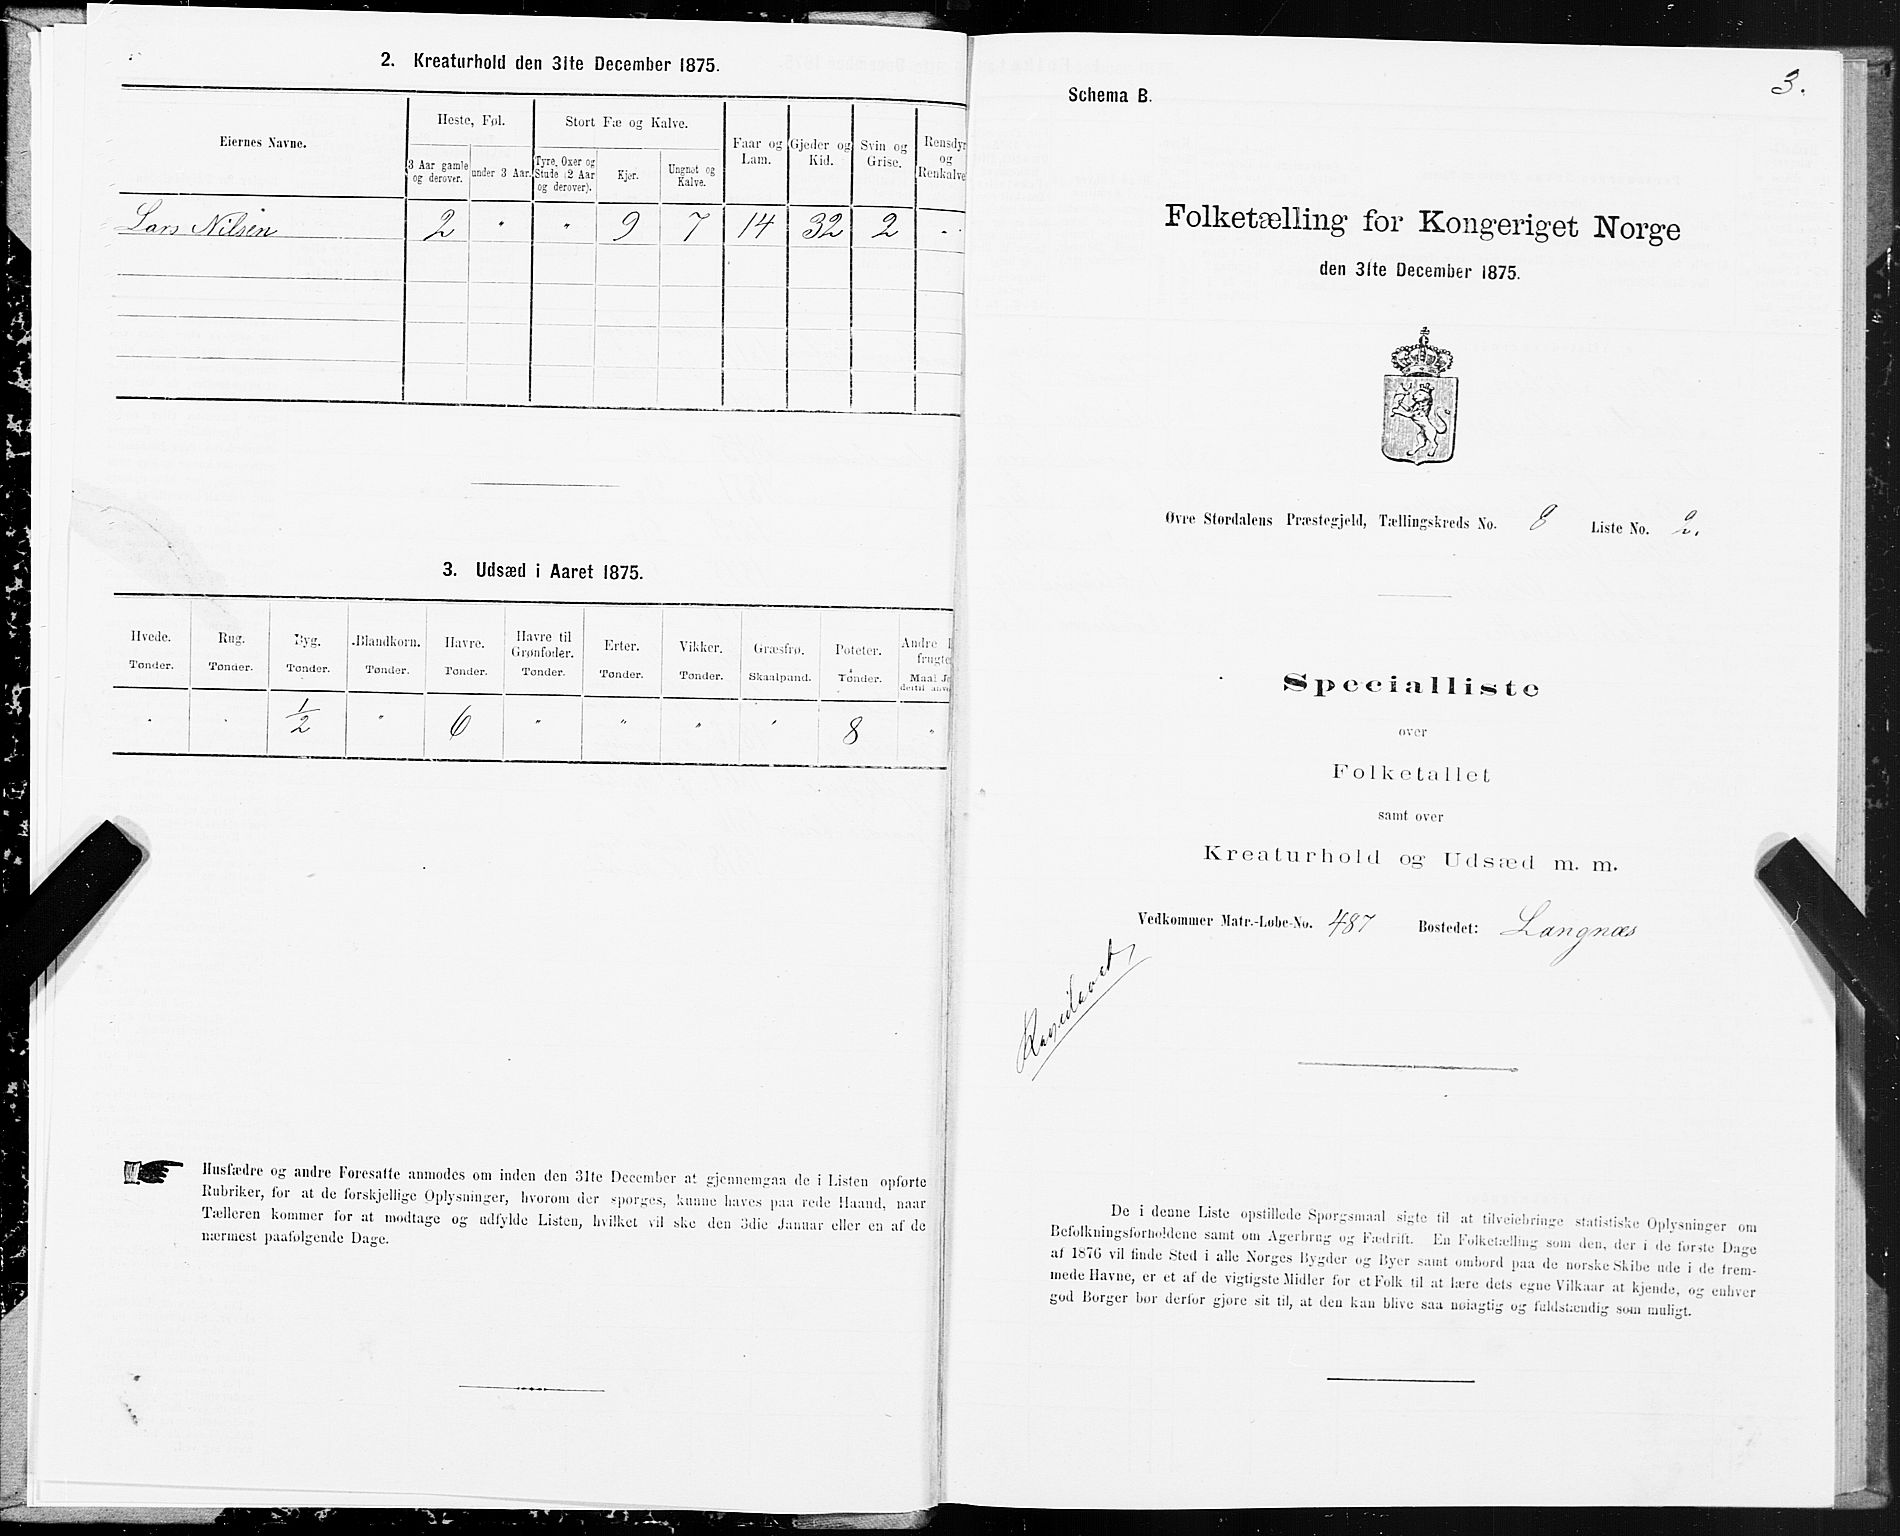 2. Kreaturhold den 31te December 1875.
Eiernes Navne.
Heste, Føl.
Stort Fæ og Kalve.
Faar og Lam.
Gjeder og Kid.
Svin og Grise.
Rensdyr og Renkalve
3 Aar gamle og derover.
under 3 Aar.
Tyre, Oxer og Stude (2 Aar og derover).
Kjør.
Ungnøt og Kalve.
Lars Nilsen 2 " " 9 7 14 32 2 "
3. Udsæd i Aaret 1875.
Hvede. Rug. Byg. Blandkorn. Havre. Havre til Grønfoder. Erter. Vikker. Græsfrø. Poteter. Andre
Tønder. Tønder. Tønder. Tønder. Tønder. Tønder. Tønder. Tønder. Skaalpund. Tønder. Maal
" " 1/2 " 6 " " " " 8 "
Husfædre og andre Foresatte anmodes om inden den 31te December at gjennemgaa de i Listen opførte
Rubriker, for at de forskjellige Oplysninger, hvorom der spørges, kunne haves paa rede Haand, naar
Tælleren kommer for at modtage og udfylde Listen, hvilket vil ske den 3die Januar eller en af de
nærmest paafølgende Dage.
3.
Schema B.
Folketælling for Kongeriget Norge
den 31te December 1875.
Øvre Stordalens Præstegjeld, Tællingskreds No. 8 Liste No. 2.
Specialliste
over
Folketallet
samt over
Kreaturhold og Udsæd m. m.
Vedkommer Matr.-Løbe-No. 487 Bostedet: Langnæs
De i denne Liste opstillede Spørgsmaal sigte til at tilveiebringe statistiske Oplysninger om
Befolkningsforholdene samt om Agerbrug og Fædrift. En Folketælling som den, der i de første Dage
af 1876 vil finde Sted i alle Norges Bygder og Byer samt ombord paa de norske Skibe ude i de frem-
mede Havne, er et af de vigtigste Midler for et Folk til at lære dets egne Vilkaar at kjende, og enhver
god Borger bør derfor gjøre sit til, at den kan blive saa nøiagtig og fuldstændig som muligt.